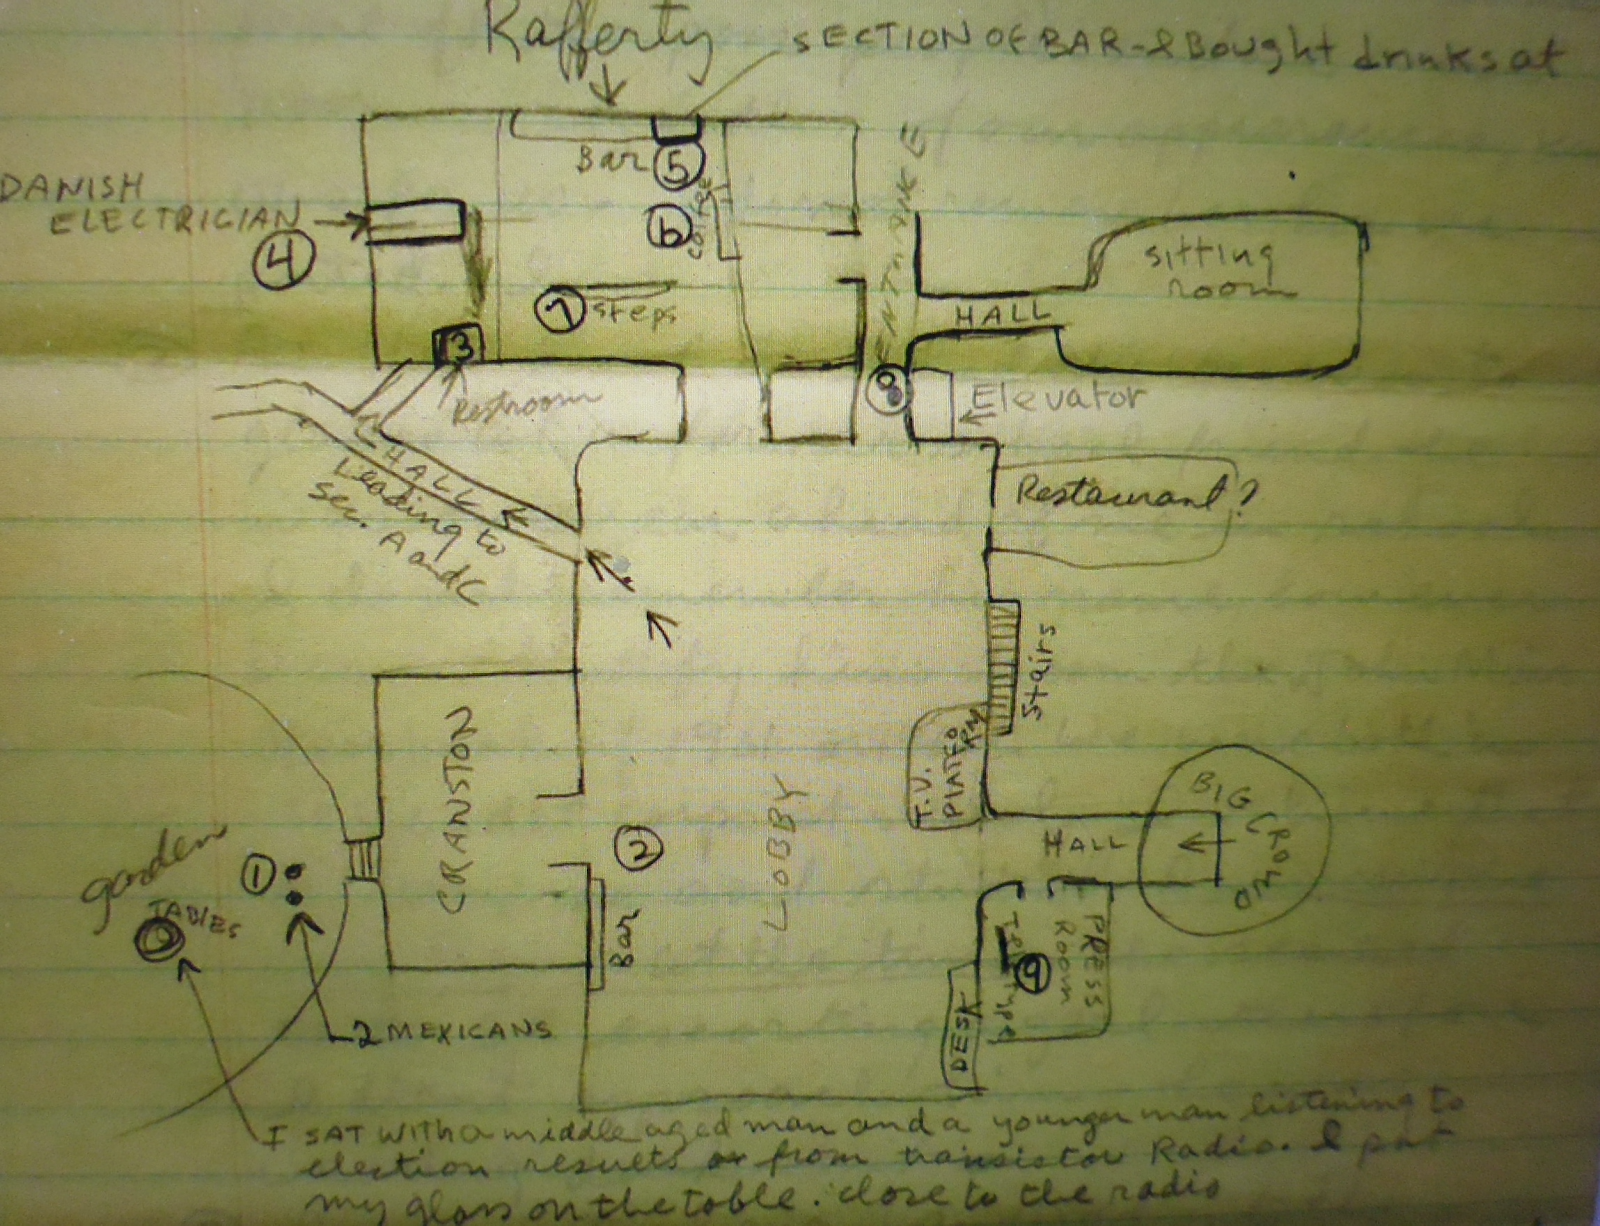 Rafferty
SECTION OF BAR - I Bought drinks at
Bar
5
DANISH
ELECTRICIAN
4
6
coffee
ENTRANKE
sitting
room
7
steps
HALL
3
Restroom
8
Elevator
HALL
Leading to
sec. A and C
Restaurant?
Stairs
T.V.
PLATFO
RM
CRANSTON
LOBBY
2
Bar
BIG CROWD
HALL
garden
1
TABLES
PRESS
ROOM
Teletype
9
DESK
2 MEXICANS
I SAT WITH a middle aged man and a younger man listening to
election results or from transistor Radio. I put
my glass on the table. close to the radio